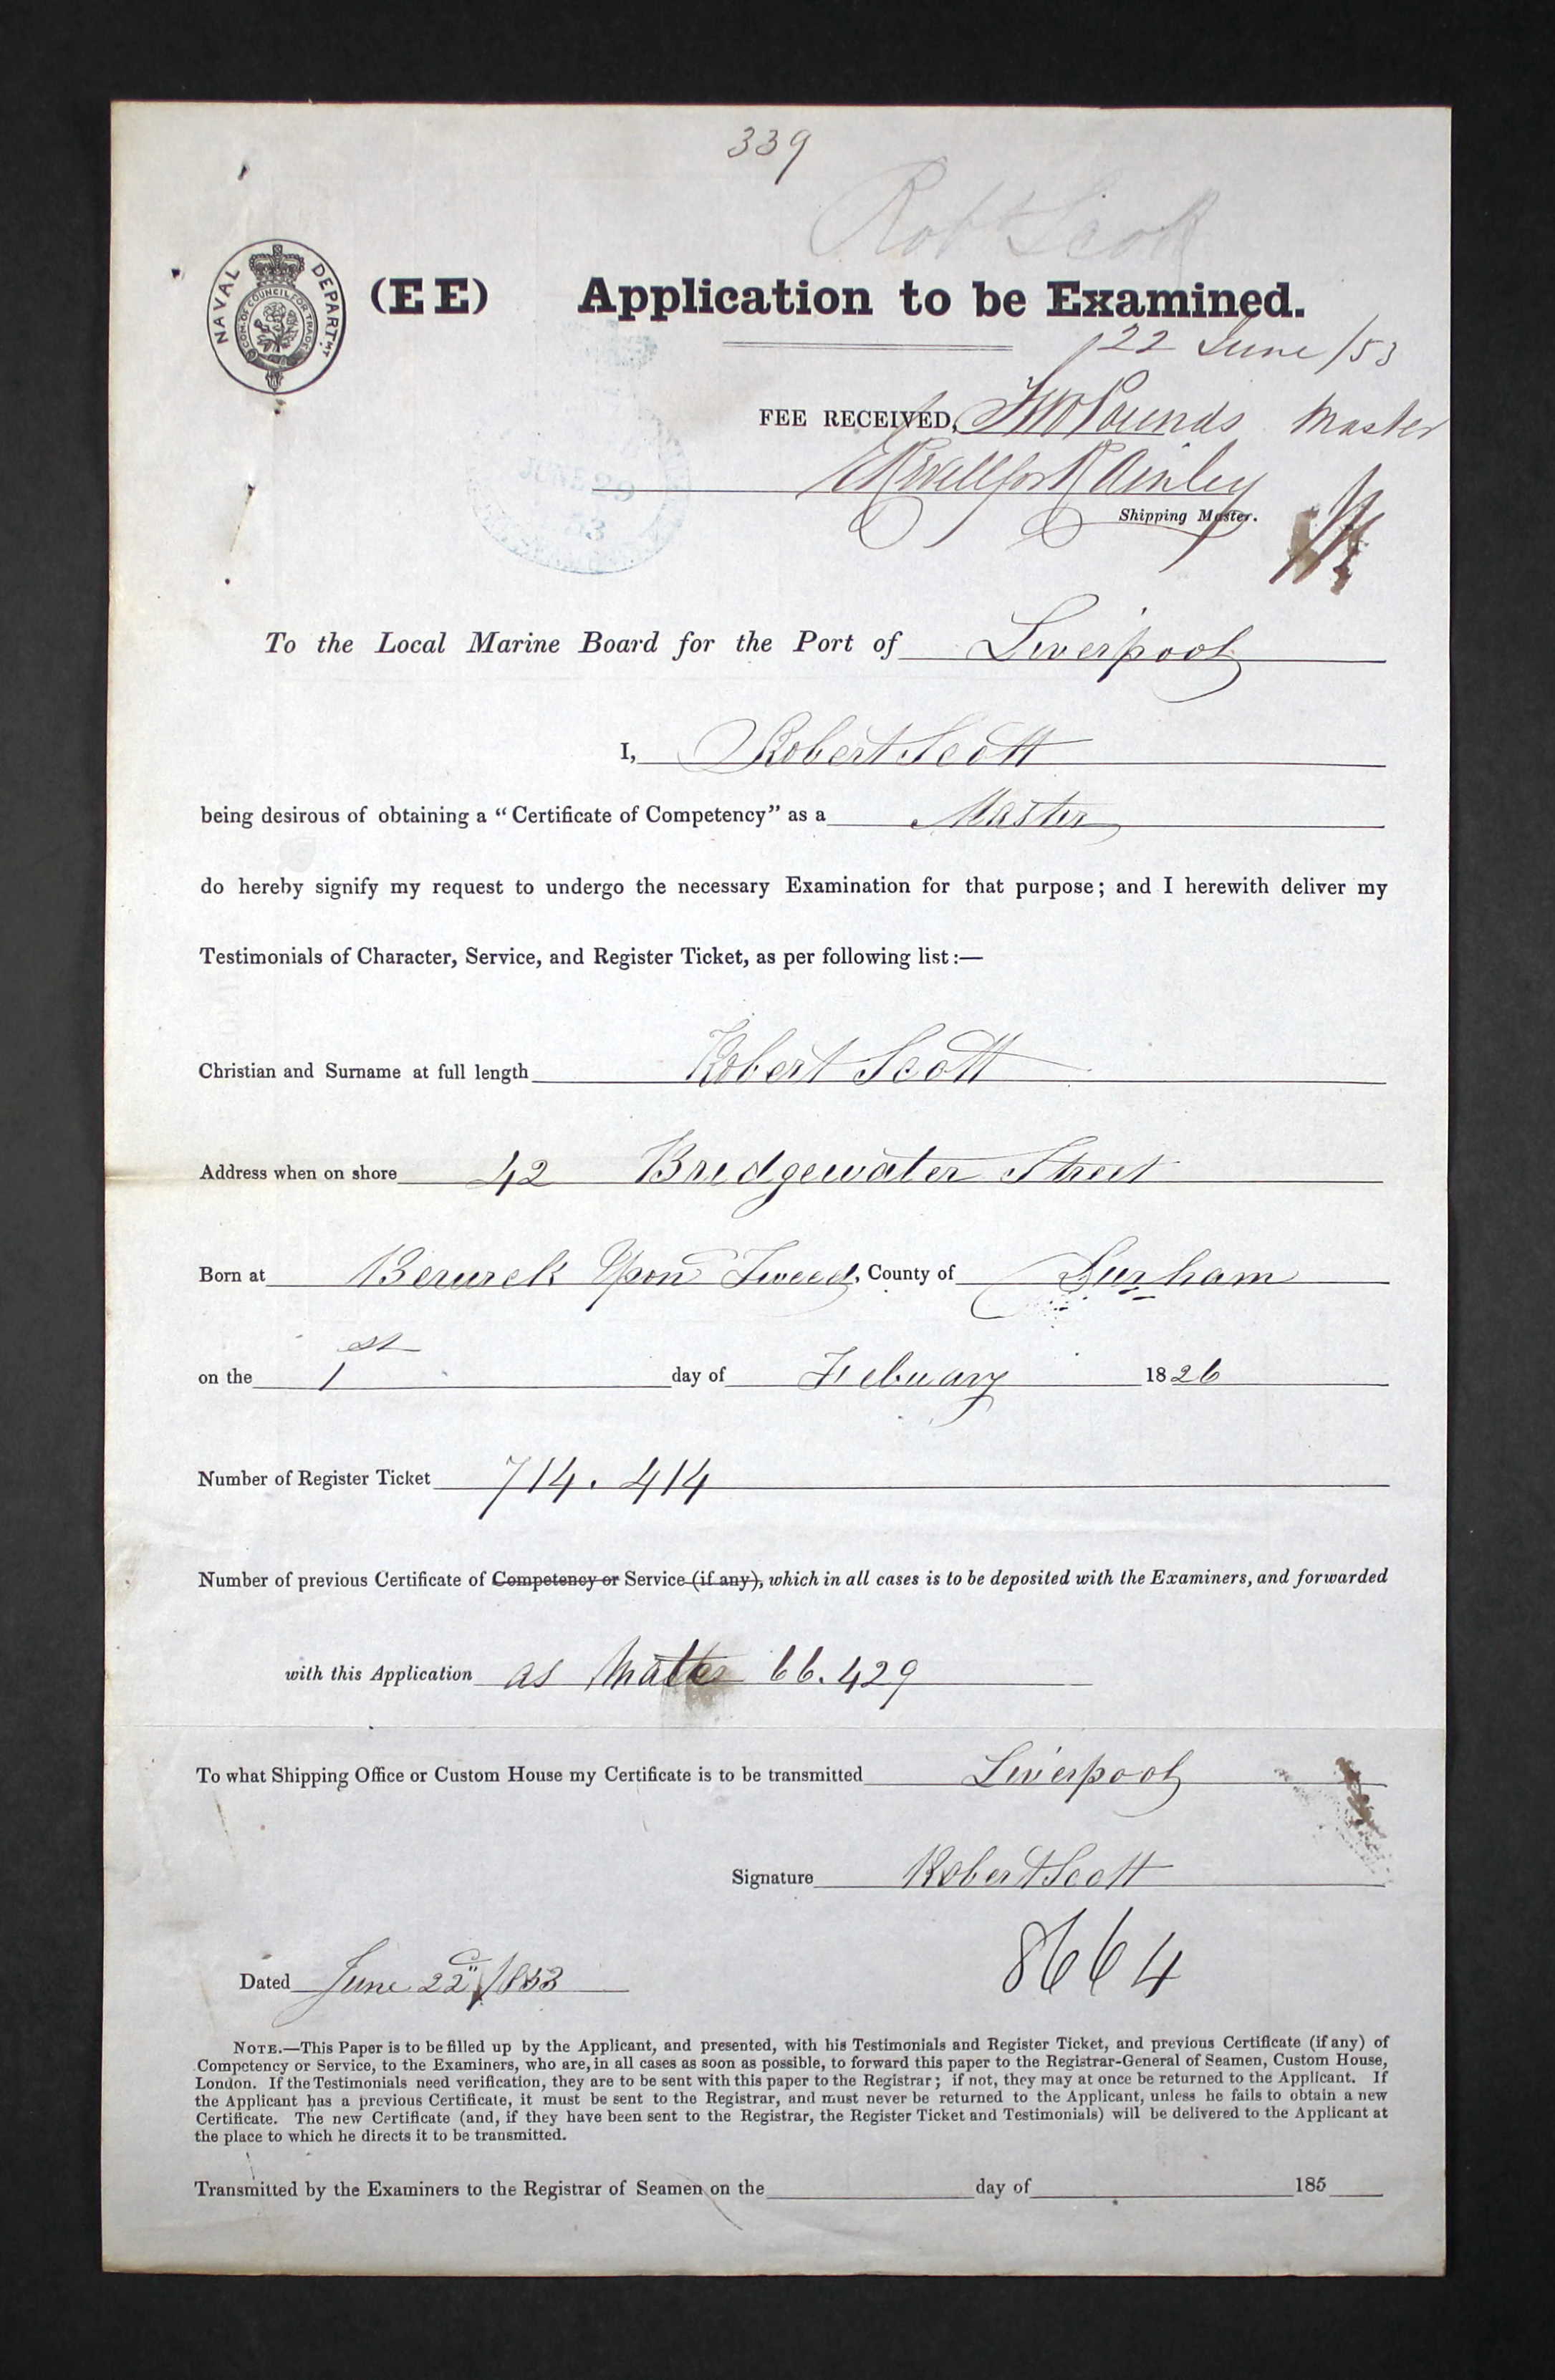 339
Robt Scott
NAVAL DEPARTMT
COM. OF COUNCIL FOR TRADE
(EE) Application to be Examined.
22 June /53
FEE RECEIVED, Two Pounds Master
for Ainley
Shipping Master.
JUNE 22
53
To the Local Marine Board for the Port of Liverpool
I, Robert Scott
being desirous of obtaining a "Certificate of Competency" as a Master
do hereby signify my request to undergo the necessary Examination for that purpose; and I herewith deliver my
Testimonials of Character, Service, and Register Ticket, as per following list:—
Christian and Surname at full length Robert Scott
Address when on shore 42 Bridgewater Street
Born at Berwick Upon Tweed, County of Durham
on the 1st day of Febuary 1826
Number of Register Ticket 714.414
Number of previous Certificate of Competency or Service (if any), which in all cases is to be deposited with the Examiners, and forwarded
with this Application as Mate 66.429
To what Shipping Office or Custom House my Certificate is to be transmitted Liverpool
Signature Robert Scott
8664
Dated June 22d 1853
NOTE.—This Paper is to be filled up by the Applicant, and presented, with his Testimonials and Register Ticket, and previous Certificate (if any) of
Competency or Service, to the Examiners, who are, in all cases as soon as possible, to forward this paper to the Registrar-General of Seamen, Custom House,
London. If the Testimonials need verification, they are to be sent with this paper to the Registrar; if not, they may at once be returned to the Applicant. If
the Applicant has a previous Certificate, it must be sent to the Registrar, and must never be returned to the Applicant, unless he fails to obtain a new
Certificate. The new Certificate (and, if they have been sent to the Registrar, the Register Ticket and Testimonials) will be delivered to the Applicant at
the place to which he directs it to be transmitted.
Transmitted by the Examiners to the Registrar of Seamen on the day of 185